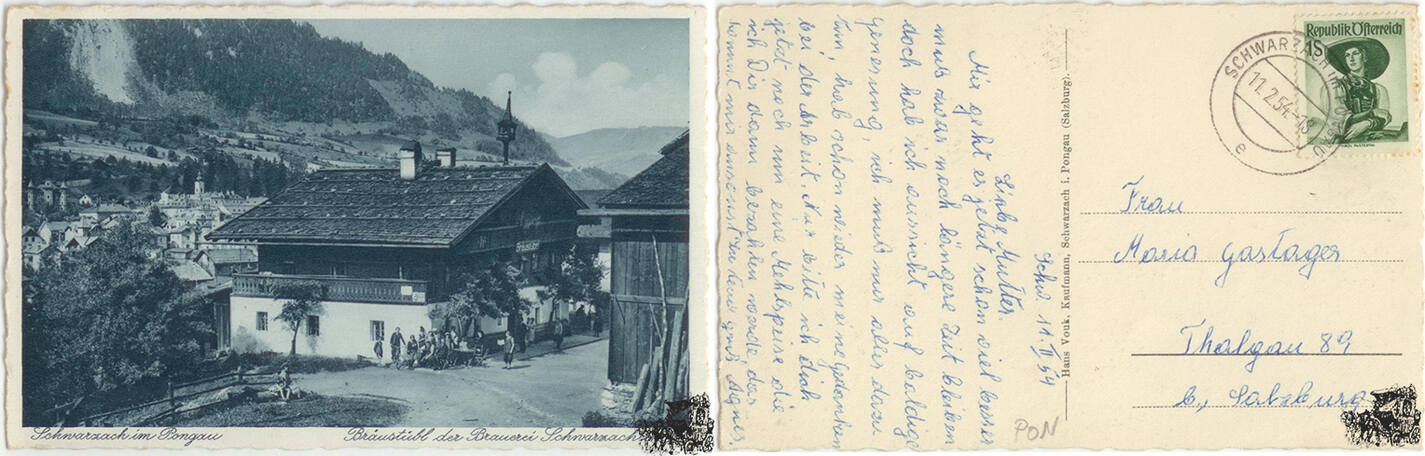 Bräustübl
Schwarzach im Pongau
Bräustübl der Brauerei Schwarzach
Schw. 11. II 54
Liebe Mutter.
Mir geht es jetzt schon viel besser
mus zwar noch längere Zeit bleiben
doch hab ich aussicht auf baldige
Genesung, ich muß nur alles dazu
tun, hab schon wieder meine Gedanken
bei der Arbeit. Nur bitte ich dich
jetzt noch um eine Mehlspeise die
ich Dir dann bezahlen werde den
kommt mir umsonst zu teuer gruß Agnes,
Hans Vouk, Kaufmann, Schwarzach i. Pongau (Salzburg).
PON
Republik Österreich
1S
SCHWARZACH IM PONGAU
11.2.54.-18
e
Frau
Maria Gastager
Thalgau 89
b., Salzburg